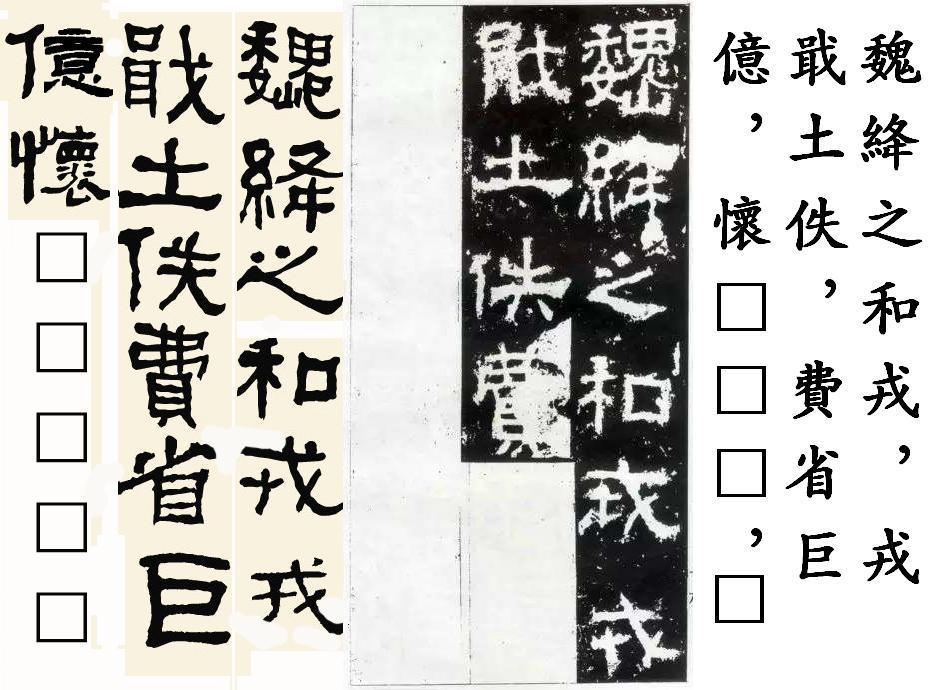 魏絳之和戎，戎
戢土佚，費省巨
億，懷□□□，□
魏絳之和戎戎
戢土佚費
魏絳之和戎戎
戢土佚費省巨
億懷□□□□□